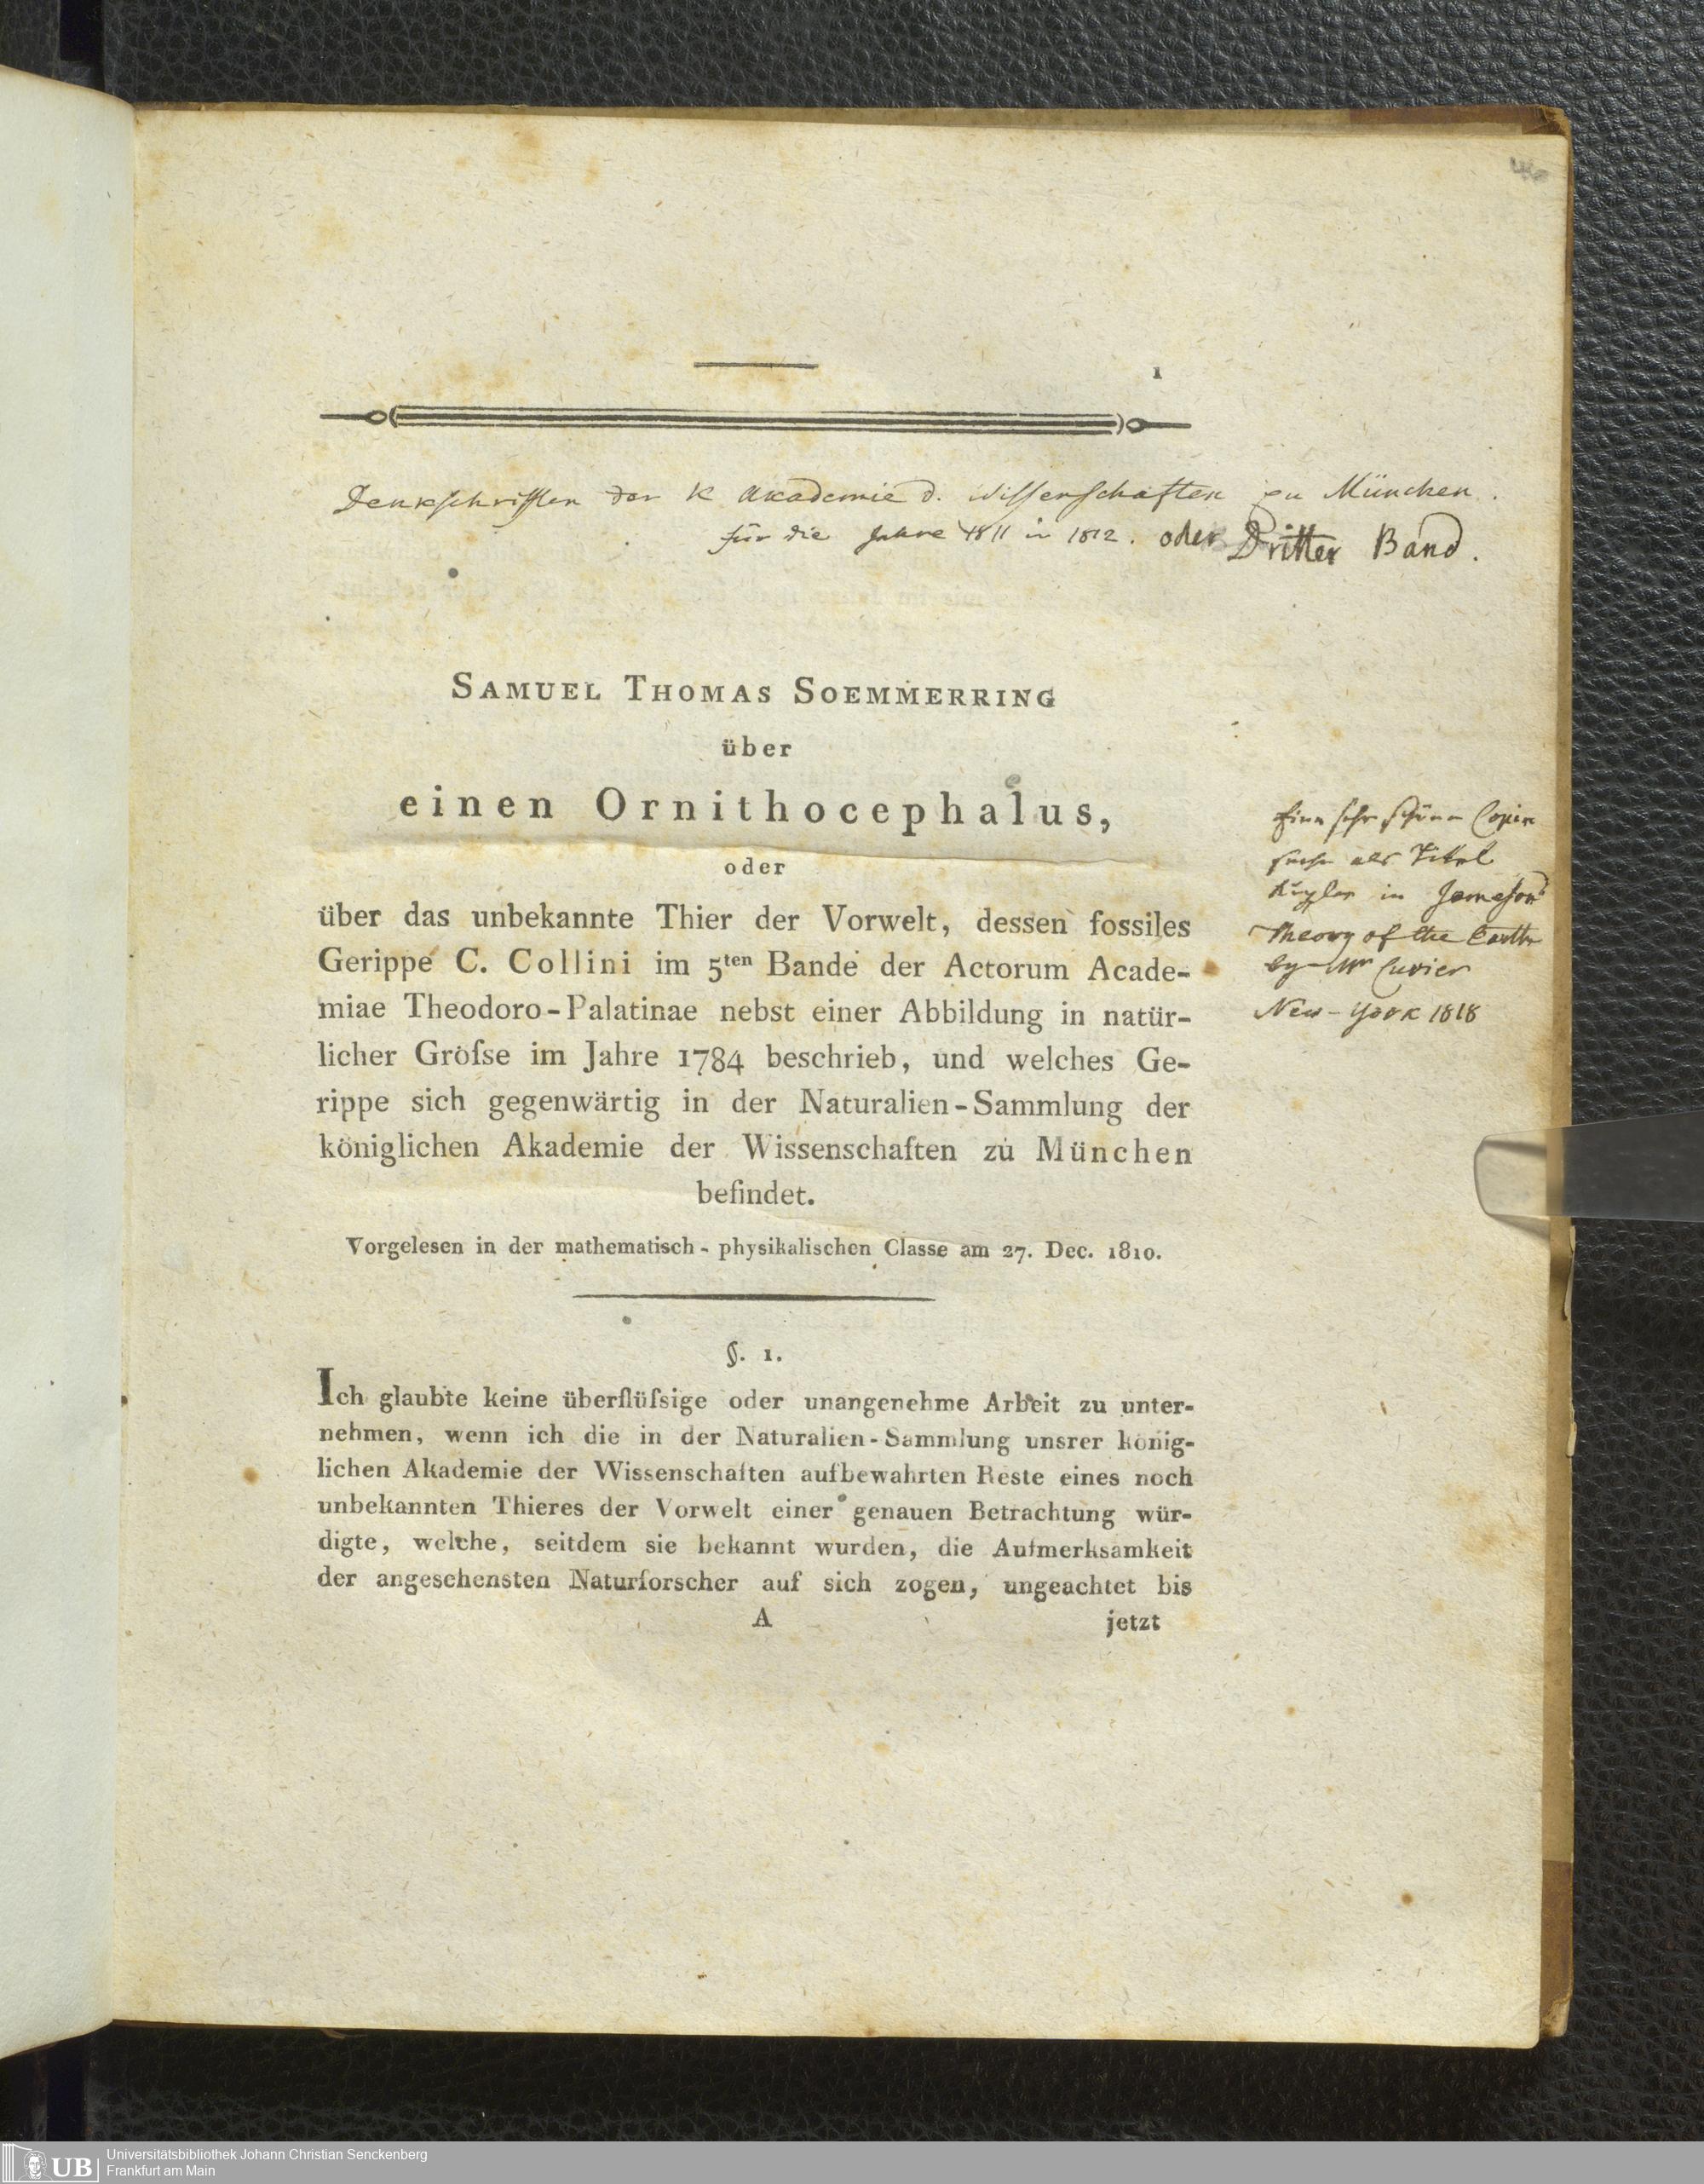 1
Denkschriften der K Akademie d. Wissenschaften zu München.
für die Jahre 1811 u 1812. oder Dritter Band.
SAMUEL THOMAS SOEMMERRING
über
einen Ornithocephalus,
oder
über das unbekannte Thier der Vorwelt, dessen fossiles
Gerippe C. Collini im 5ten Bande der Actorum Acade-
miae Theodoro-Palatinae nebst einer Abbildung in natür-
licher Gröſse im Jahre 1784 beschrieb, und welches Ge-
rippe sich gegenwärtig in der Naturalien-Sammlung der
königlichen Akademie der Wissenschaften zu München
befindet.
Vorgelesen in der mathematisch-physikalischen Classe am 27. Dec. 1810.
Eine sehr schöne Copie
als Titel
in Jameson's
Theory of the Earth
by Mr Cuvier
New-York 1818
§. 1.
Ich glaubte keine überflüſsige oder unangenehme Arbeit zu unter-
nehmen, wenn ich die in der Naturalien-Sammlung unsrer könig-
lichen Akademie der Wissenschaften aufbewahrten Reste eines noch
unbekannten Thieres der Vorwelt einer genauen Betrachtung wür-
digte, welche, seitdem sie bekannt wurden, die Aufmerksamkeit
der angesehensten Naturforscher auf sich zogen, ungeachtet bis
A jetzt
UB Universitätsbibliothek Johann Christian Senckenberg
Frankfurt am Main